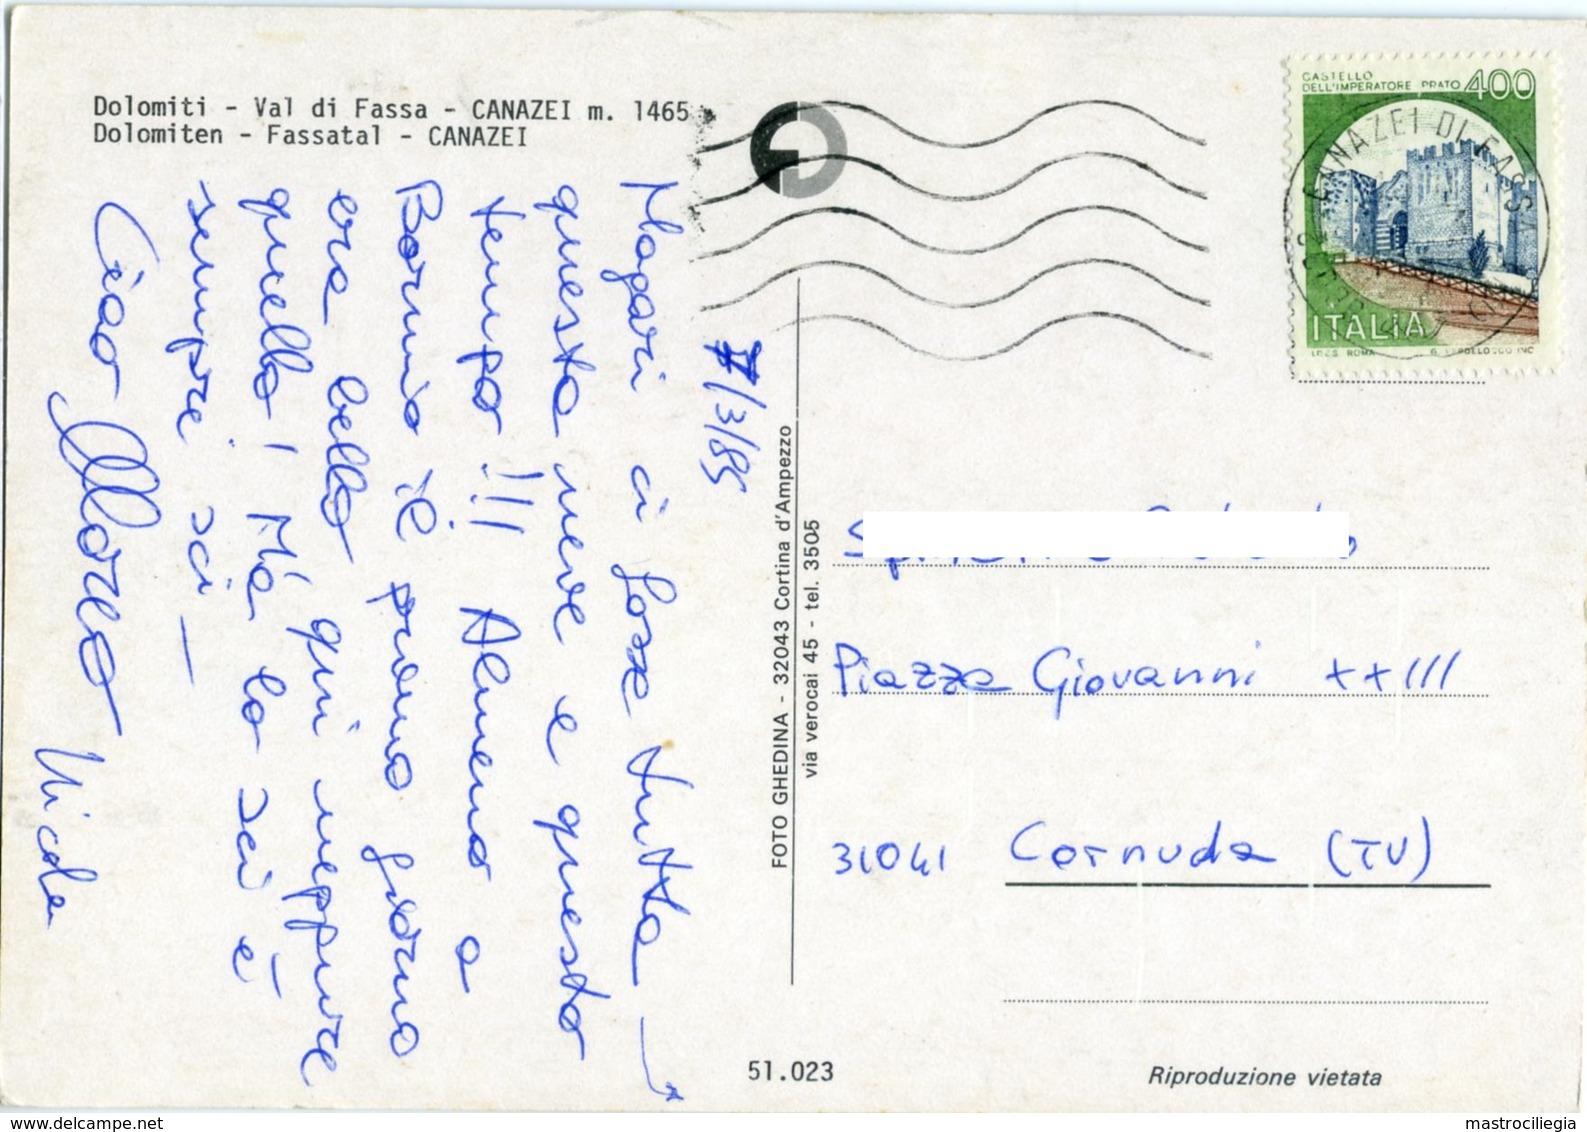 Dolomiti - Val di Fassa - CANAZEI m. 1465
Dolomiten - Fassatal - CANAZEI
7/3/85
Magari ci fosse tutta
questa neve e questo
tempo !!! Almeno a
Bormio il primo giorno
era bello qui neppure
quello! Ma lo sci è
sempre sci -
Ciao Nicola
FOTO GHEDINA - 32043 Cortina d'Ampezzo
via verocai 45 - tel. 3505
CASTELLO
DELL'IMPERATORE PRATO 400
ITALIA
CANAZEI DI FASSA
Piazza Giovanni XXIII
31041 Cornuda (TV)
51.023
Riproduzione vietata
mastrociliegia
www.delcampe.net